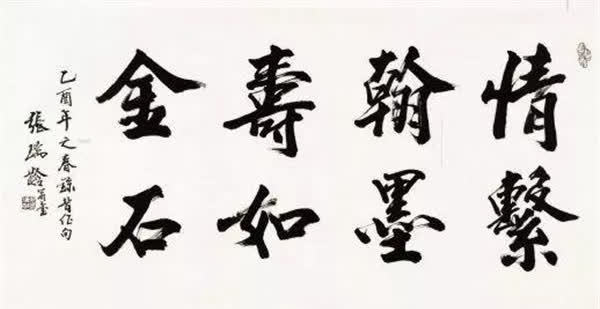 情繫
翰墨
壽如
金石
乙酉年之春錄昔作句
張瑞齡